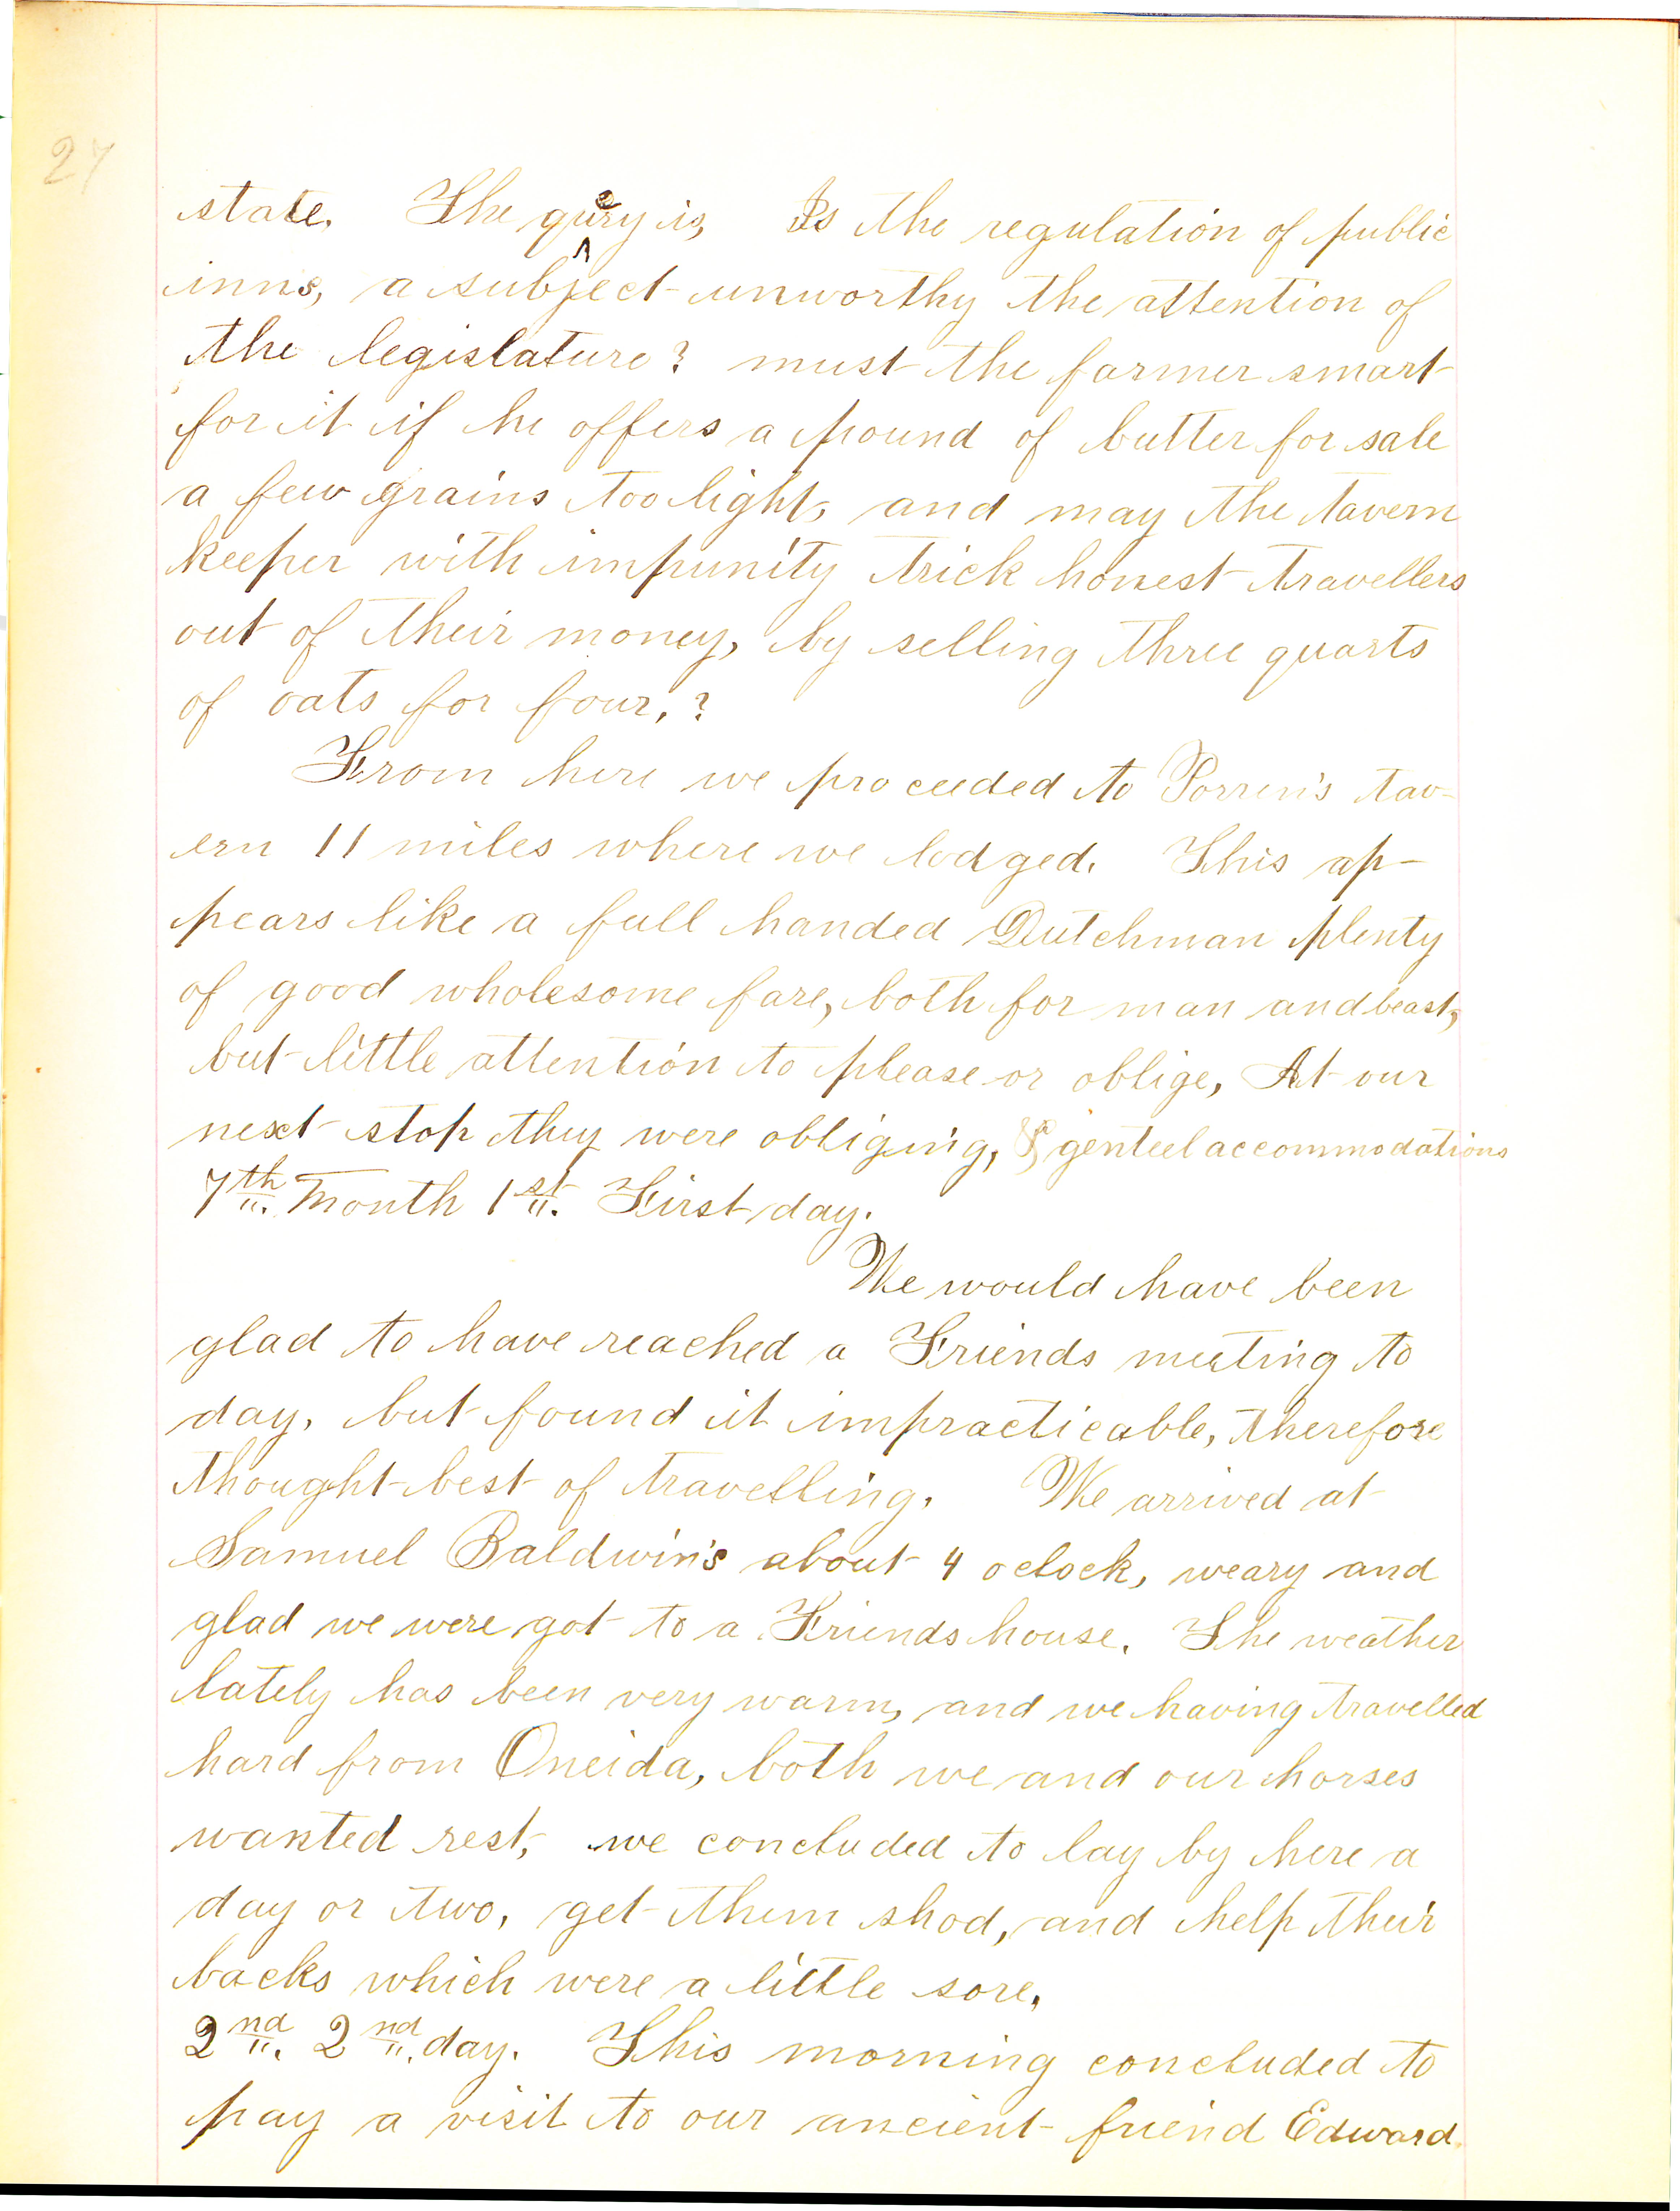 27
state. The query is, Is the regulation of public
inns, a subject unworthy the attention of
the legislature? must the farmer smart
for it if he offers a pound of butter for sale
a few grains too light, and may the tavern
keeper with impunity trick honest travellers
out of their money, by selling three quarts
of oats for four,?
From here we proceeded to Porren's tav-
ern 11 miles where we lodged. This ap-
pears like a full handed Dutchman plenty
of good wholesome fare, both for man and beast,
but little attention to please or oblige, At our
next stop they were obliging, & genteel accommodations
7th. Month 1st. First day.
We would have been
glad to have reached a Friends meeting to
day, but found it impracticable, therefore
thought best of travelling. We arrived at
Samuel Baldwin's about 4 oclock, weary and
glad we were got to a Friends house. The weather
lately has been very warm, and we having travelled
hard from Oneida, both we and our horses
wanted rest, we concluded to lay by here a
day or two, get them shod, and help their
backs which were a little sore.
2nd. 2nd. day. This morning concluded to
pay a visit to our ancient friend Edward